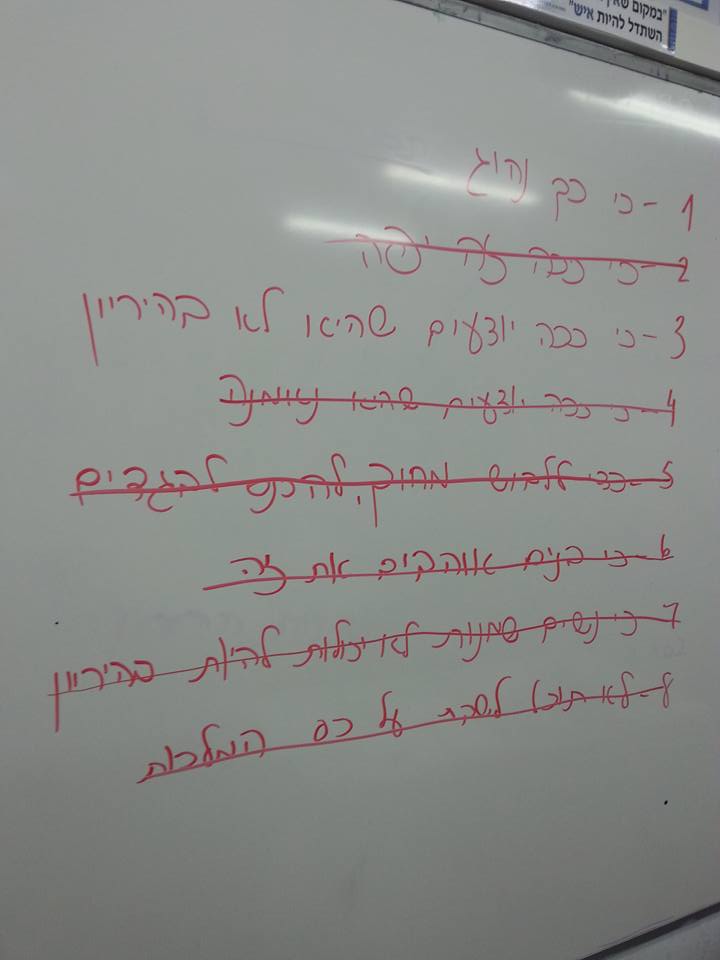 "במקום שאין
השתדל להיות איש"
1 - כי כך נהוג
2 - כי ככה זה יפה
3 - כי ככה יודעים שהיא לא בהיריון
4 - כי ככה יודעים שהיא
5 - כדי ללבוש מחוך, להכנס לבגדים
6 - כי בנים אוהבים את זה
7 כי נשים שמנות לא יכולות להיות בהיריון
8 - לא תוכל לשבת על כס המלכות